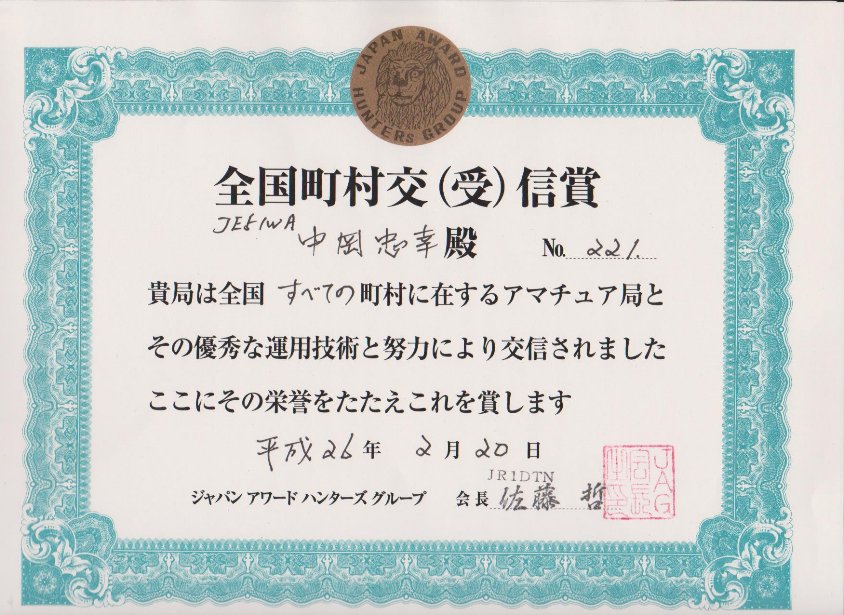 JAPAN AWARD HUNTERS GROUP
全国町村交(受)信賞
JE5IWA
中岡忠幸殿 No. 221.
貴局は全国 すべての町村に在するアマチュア局と
その優秀な運用技術と努力により交信されました
ここにその栄誉をたたえこれを賞します
平成26年 2月20日
JR1DTN
ジャパン アワード ハンターズ グループ 会長 佐藤 哲
JAG